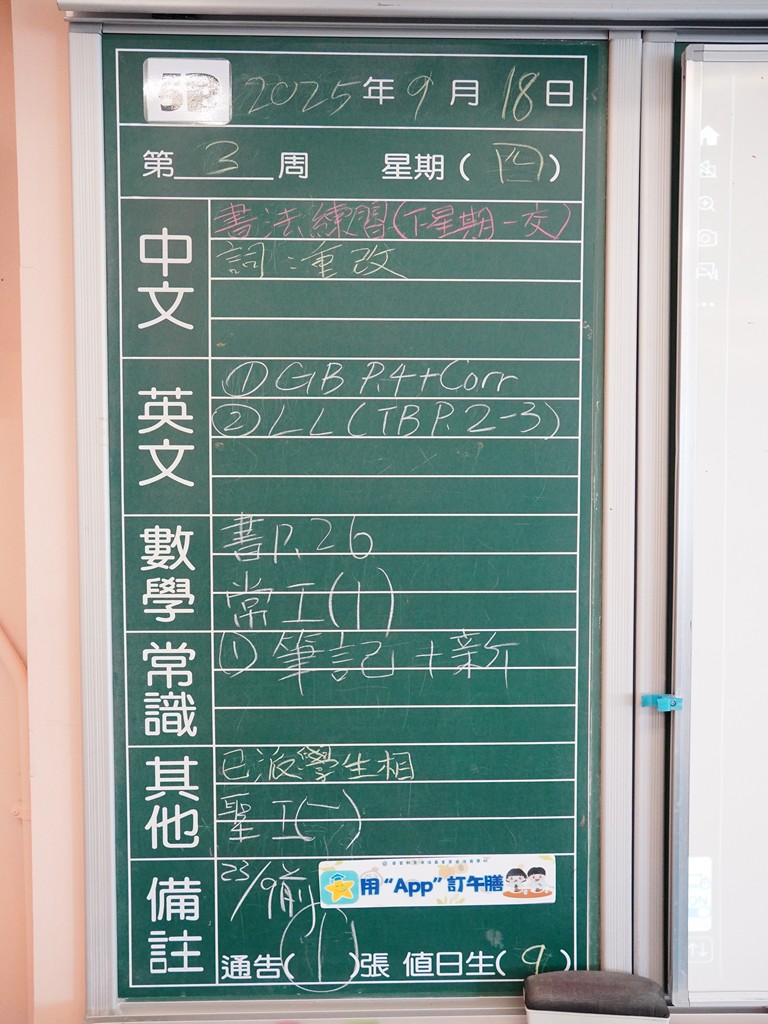 2025年9月18日
第3周 星期(四)
中文
書法練習(下星期一交)
詞:重改
英文
① GB P.4+Corr
② LL (TB P.2-3)
數學
書P.26
常工(1)
常識
① 筆記+新
其他
已派學生相
聖工(一)
備註
23/9前
用“App”訂午膳
通告(1)張 值日生(9)